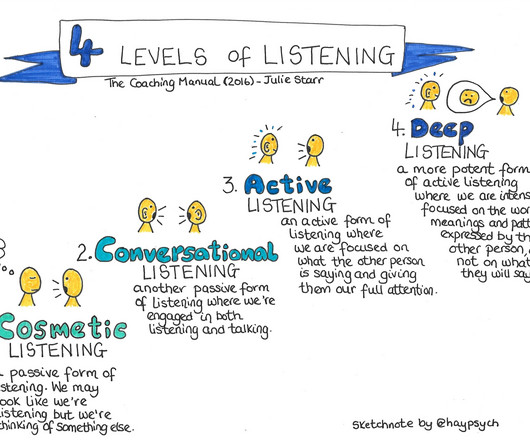 4 LEVELS of LISTENING
The Coaching Manual (2016) - Julie Starr
Cosmetic
LISTENING
passive form of
stening. We may
ook like we're
istening but we're
hinking of something else.
2. Conversational
LISTENING
another passive form
of listening where we're
engaged in both
listening and talking.
3. Active
LISTENING
an active form of
listening where
we are focused on
what the other person
is saying and giving
them our full attention.
4. Deep
LISTENING
a more potent form
of active listening
where we are intens
focused on the wor
meanings and patt
expressed by th
other person,
not on what
they will say
Sketchnote by @haypsych